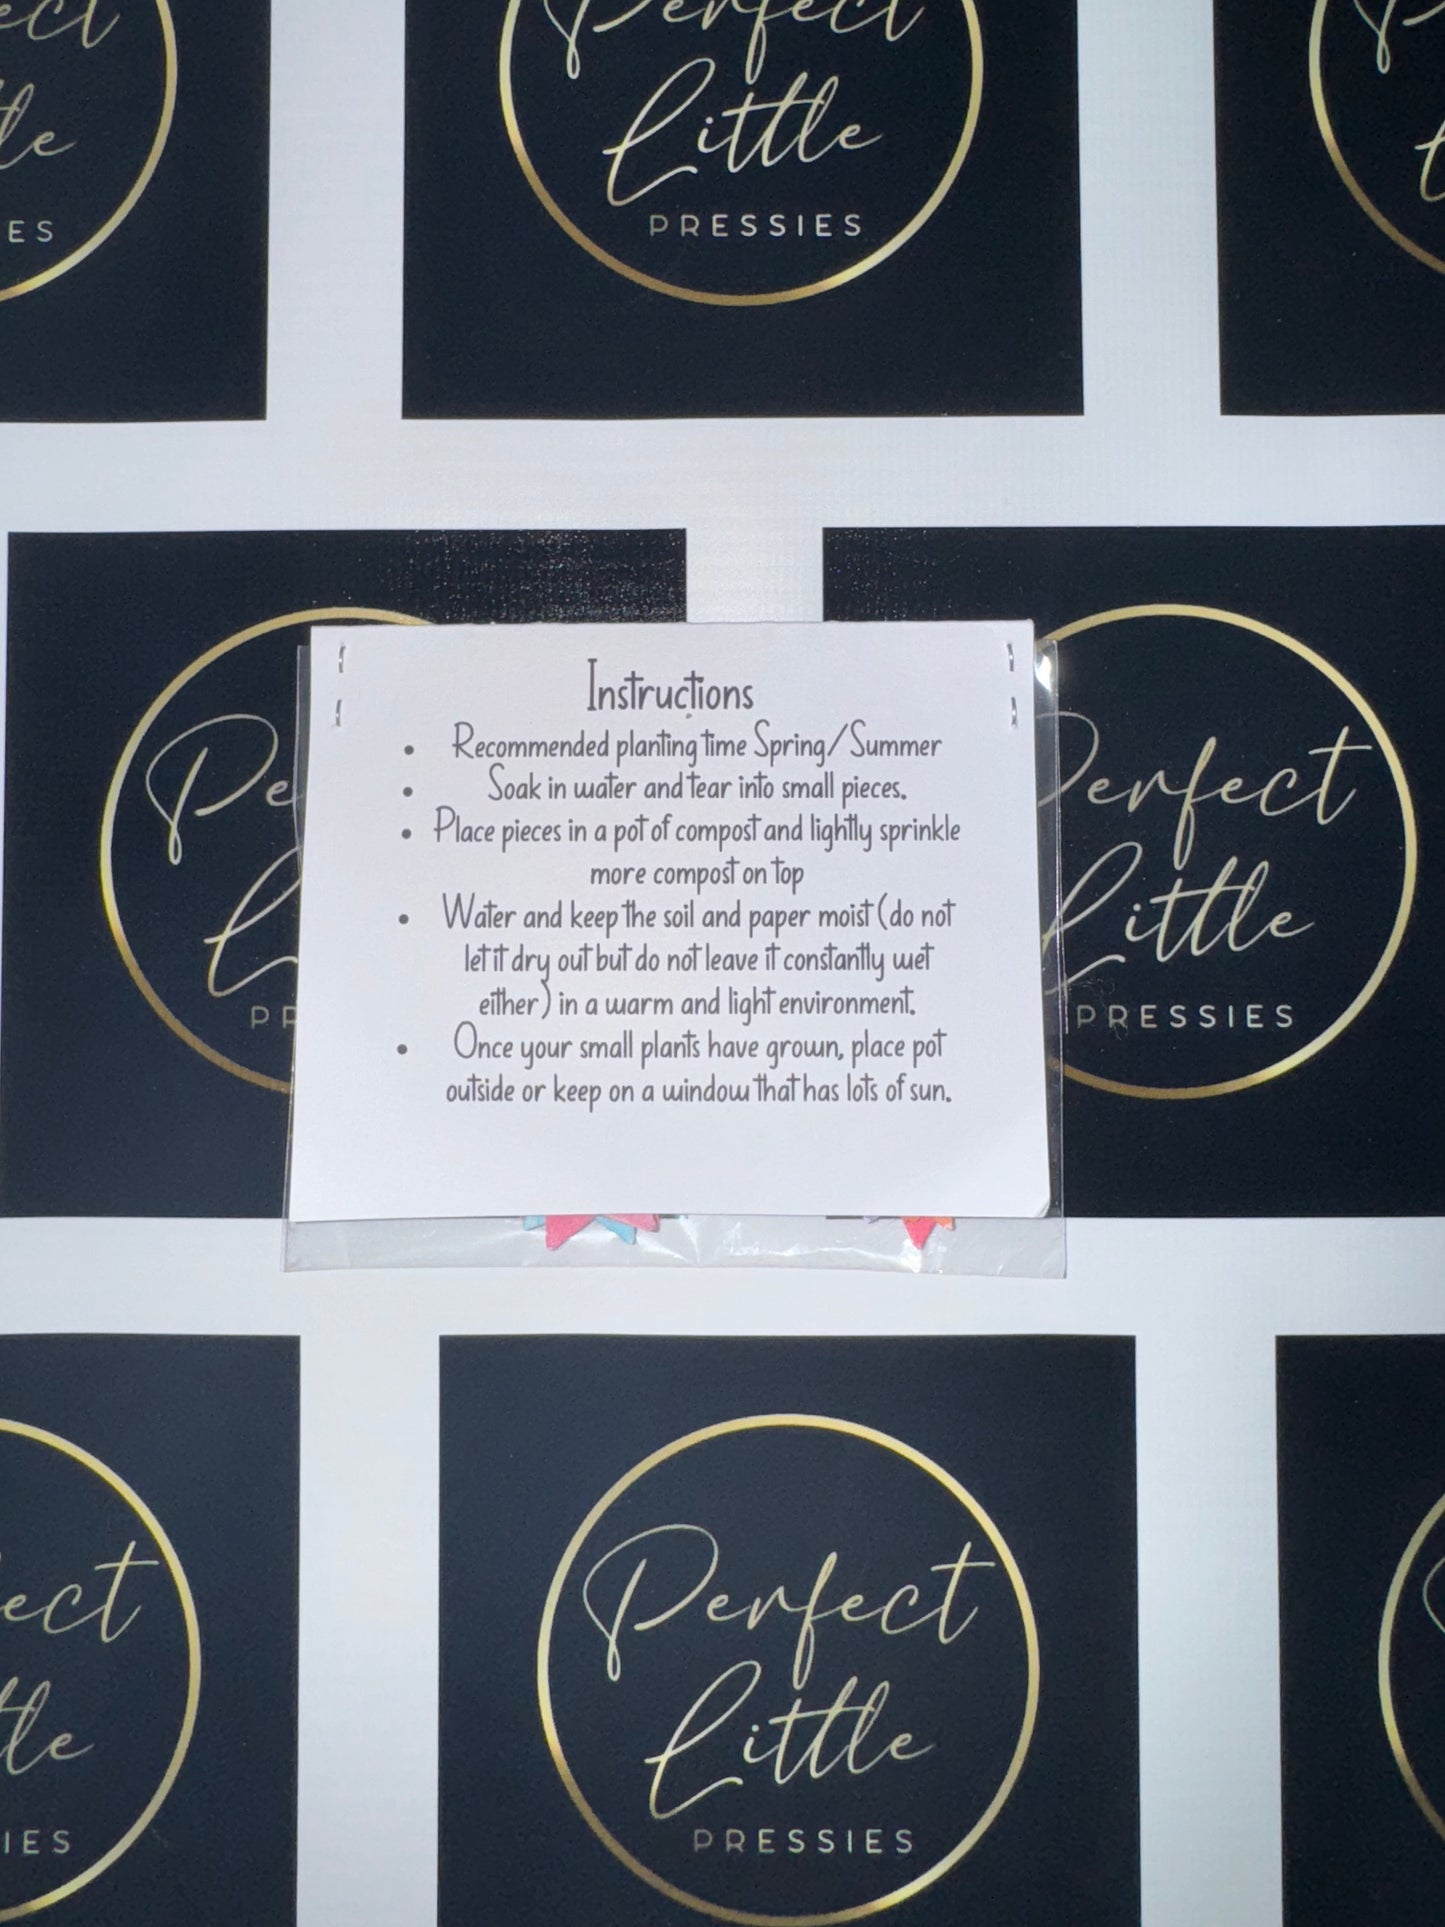 ect
tle
ES
Perfect
Little
PRESSIES
Instructions
• Recommended planting time Spring/Summer
• Soak in water and tear into small pieces.
• Place pieces in a pot of compost and lightly sprinkle
more compost on top
• Water and keep the soil and paper moist (do not
let it dry out but do not leave it constantly wet
either) in a warm and light environment.
• Once your small plants have grown, place pot
outside or keep on a window that has lots of sun.
Pe
L
PR
Perfect
Little
PRESSIES
ect
tle
IES
Perfect
Little
PRESSIES